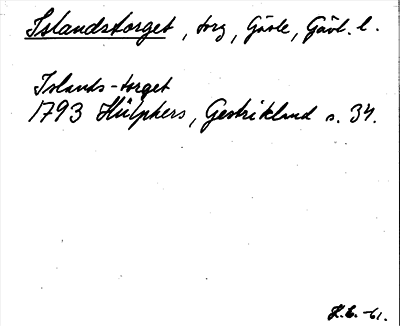 Islandstorget, torg, Gävle, Gävl. l.
Islands-torget
1793 Hülphers, Gestrikland s. 34.
H.E. -61.